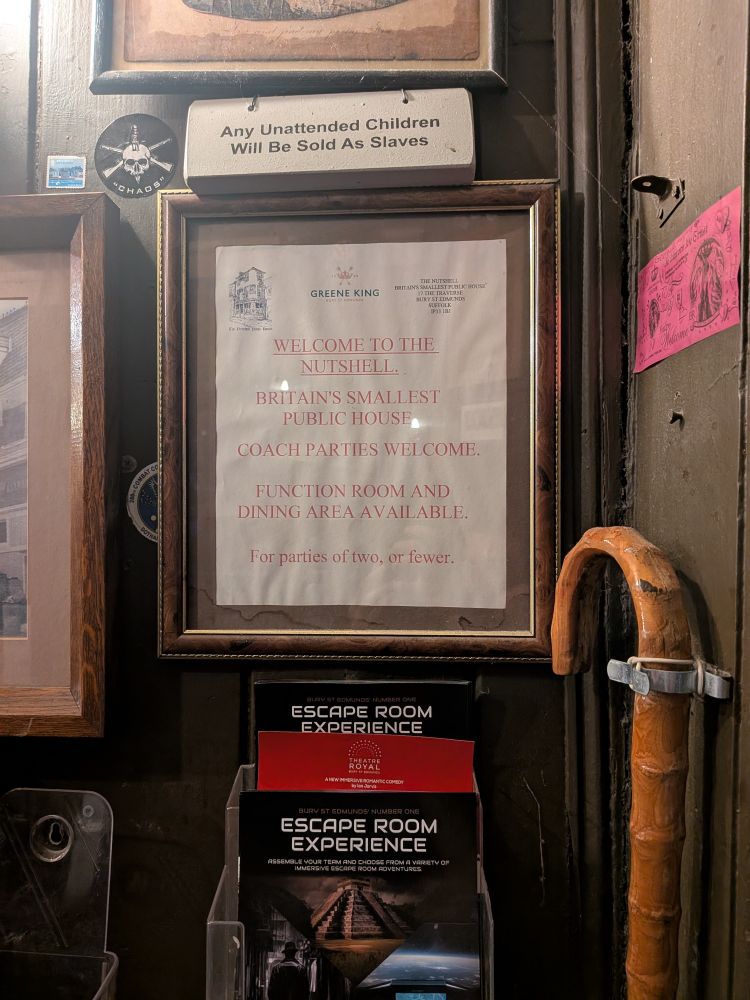 Any Unattended Children
Will Be Sold As Slaves
"CHAOS"
GREENE KING
BURY ST EDMUNDS
THE NUTSHELL
BRITAIN'S SMALLEST PUBLIC HOUSE
17 THE TRAVERSE
BURY ST EDMUNDS
SUFFOLK
IP33 1BJ
WELCOME TO THE
NUTSHELL.
BRITAIN'S SMALLEST
PUBLIC HOUSE
COACH PARTIES WELCOME.
FUNCTION ROOM AND
DINING AREA AVAILABLE.
For parties of two, or fewer.
BURY ST EDMUNDS' NUMBER ONE
ESCAPE ROOM
EXPERIENCE
THEATRE
ROYAL
BURY ST EDMUNDS
A NEW IMMERSIVE ROMANTIC COMEDY
by Ian Jarvis
BURY ST EDMUNDS' NUMBER ONE
ESCAPE ROOM
EXPERIENCE
ASSEMBLE YOUR TEAM AND CHOOSE FROM A VARIETY OF
IMMERSIVE ESCAPE ROOM ADVENTURES.